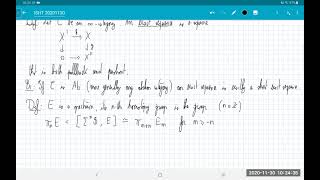 ISHT 20201130
Def: Let C be an ∞-category. An exact square is a square
X' → X
↓ ↓
0 → X''
that is both pullback and pushout.
Ex: If C is Ab (more generally any abelian category) an exact square is exactly a short exact square.
Def: E is a spectrum, its n-th homotopy group is the group (n∈Z)
π_n E = [Σ^n S, E] ≃ π_{n+m} E_m for m ≥ -n
2020-11-30 10:24:35